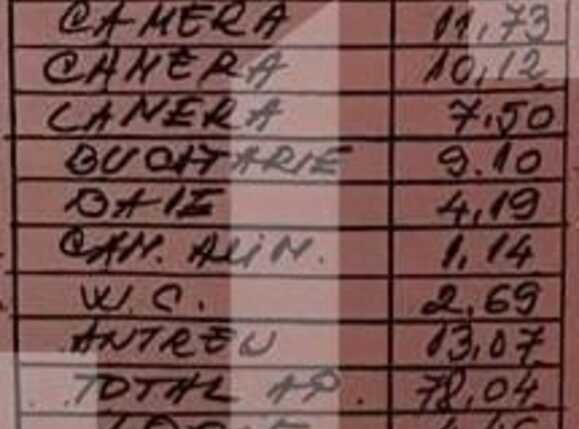 CAMERA 11,73
CAMERA 10,12
CAMERA 7,50
BUCATARIE 9.10
BAIE 4,19
CAM. ALIM. 1,14
W.C. 2,69
ANTREU 13,07
TOTAL AP. 78,04